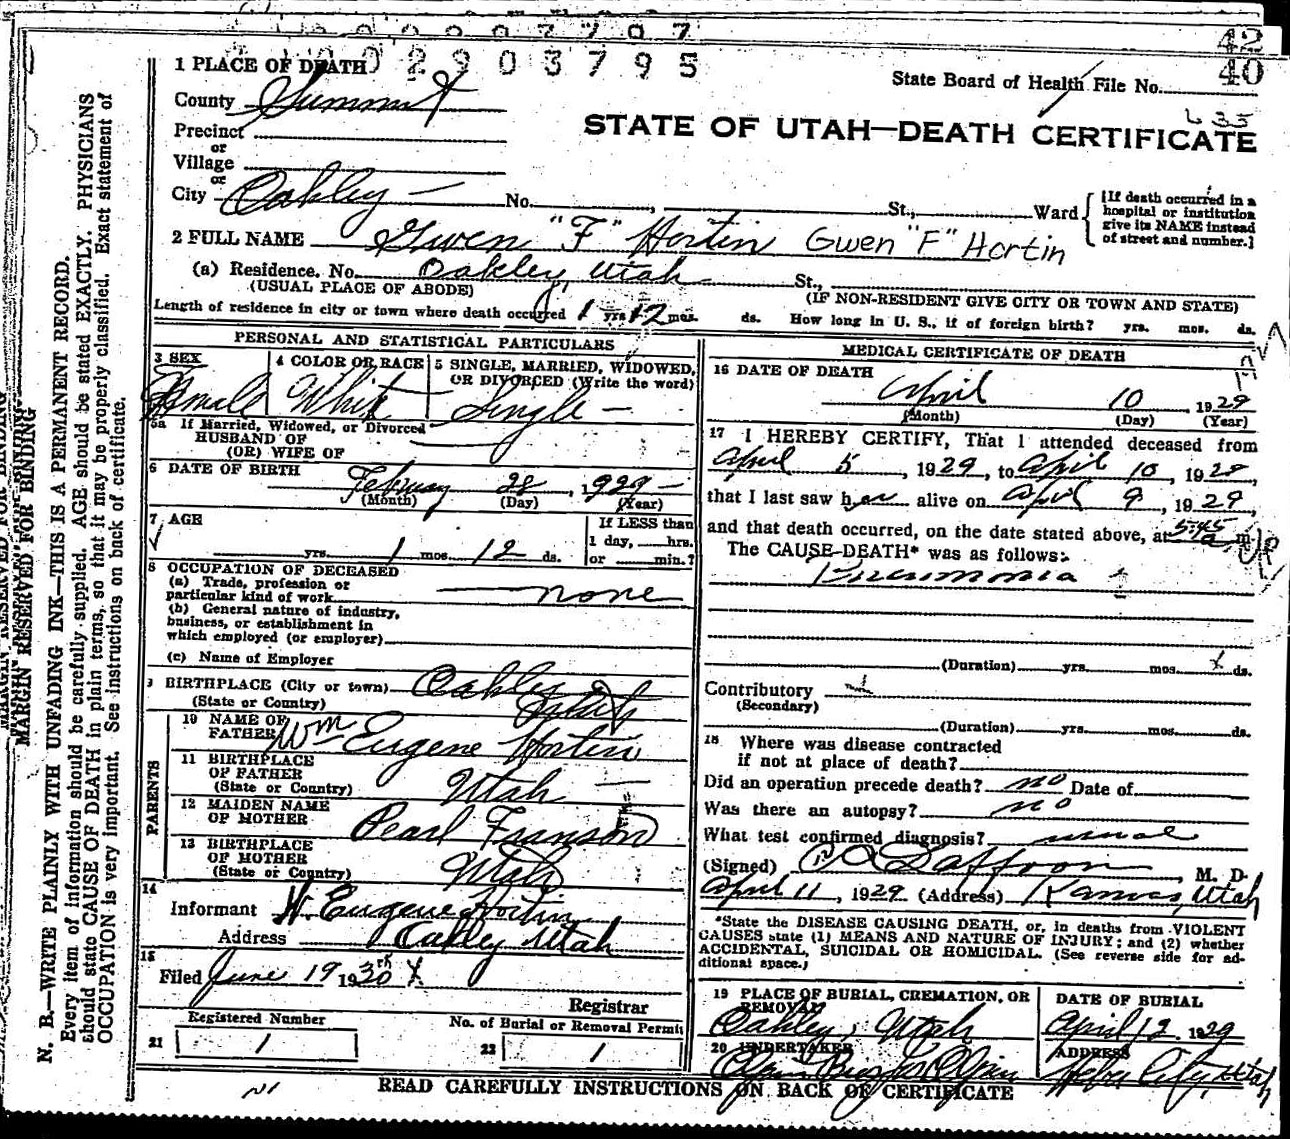 0 2 9 0 3 7 9 5
42
40
1 PLACE OF DEATH
State Board of Health File No.
County Summit
STATE OF UTAH—DEATH CERTIFICATE
Precinct
or
Village
or
City Oakley — No. , St., Ward
[If death occurred in a
hospital or institution
give its NAME instead
of street and number.]
2 FULL NAME Gwen "F" Hortin Gwen "F" Hortin
(a) Residence. No. Oakley, Utah St.,
(USUAL PLACE OF ABODE) (IF NON-RESIDENT GIVE CITY OR TOWN AND STATE)
Length of residence in city or town where death occurred 1 yrs 12 mos. ds. How long in U. S., if of foreign birth? yrs. mos. ds.
PERSONAL AND STATISTICAL PARTICULARS
3 SEX Female
4 COLOR OR RACE White
5 SINGLE, MARRIED, WIDOWED,
OR DIVORCED (Write the word)
Single —
5a If Married, Widowed, or Divorced
HUSBAND OF
(OR) WIFE OF
6 DATE OF BIRTH February 28, 1929 —
(Month) (Day) (Year)
7 AGE
yrs. 1 mos. 12 ds.
If LESS than
1 day, hrs.
or min.?
8 OCCUPATION OF DECEASED
(a) Trade, profession or
particular kind of work none
(b) General nature of industry,
business, or establishment in
which employed (or employer)
(c) Name of Employer
9 BIRTHPLACE (City or town) Oakley
(State or Country) Utah
PARENTS
10 NAME OF
FATHER Wm Eugene Hortin
11 BIRTHPLACE
OF FATHER
(State or Country) Utah —
12 MAIDEN NAME
OF MOTHER Pearl Franson
13 BIRTHPLACE
OF MOTHER
(State or Country) Utah
14
Informant W. Eugene Hortin
Address Oakley Utah
15
Filed June 19 1930
Registrar
Registered Number
21 1
No. of Burial or Removal Permit
22 1
MEDICAL CERTIFICATE OF DEATH
16 DATE OF DEATH
April 10, 1929
(Month) (Day) (Year)
17 I HEREBY CERTIFY, That I attended deceased from
April 5, 1929, to April 10, 1929,
that I last saw her alive on April 9, 1929,
and that death occurred, on the date stated above, at 5:45 a m.
The CAUSE-DEATH* was as follows:
Pneumonia
(Duration) yrs. mos. ds.
Contributory
(Secondary)
(Duration) yrs. mos. ds.
18 Where was disease contracted
if not at place of death?
Did an operation precede death? no Date of
Was there an autopsy? no
What test confirmed diagnosis? usual
(Signed) , M. D.
April 11, 1929 (Address) Kamas, Utah
*State the DISEASE CAUSING DEATH, or, in deaths from VIOLENT
CAUSES state (1) MEANS AND NATURE OF INJURY; and (2) whether
ACCIDENTAL, SUICIDAL OR HOMICIDAL. (See reverse side for ad-
ditional space.)
19 PLACE OF BURIAL, CREMATION, OR
REMOVAL
Oakley, Utah
DATE OF BURIAL
April 12 1929
20 UNDERTAKER
ADDRESS
Heber City, Utah
READ CAREFULLY INSTRUCTIONS ON BACK OF CERTIFICATE
MARGIN RESERVED FOR BINDING
N. B.—WRITE PLAINLY WITH UNFADING INK—THIS IS A PERMANENT RECORD.
Every item of information should be carefully supplied. AGE should be stated EXACTLY. PHYSICIANS
should state CAUSE OF DEATH in plain terms, so that it may be properly classified. Exact statement of
OCCUPATION is very important. See instructions on back of certificate.